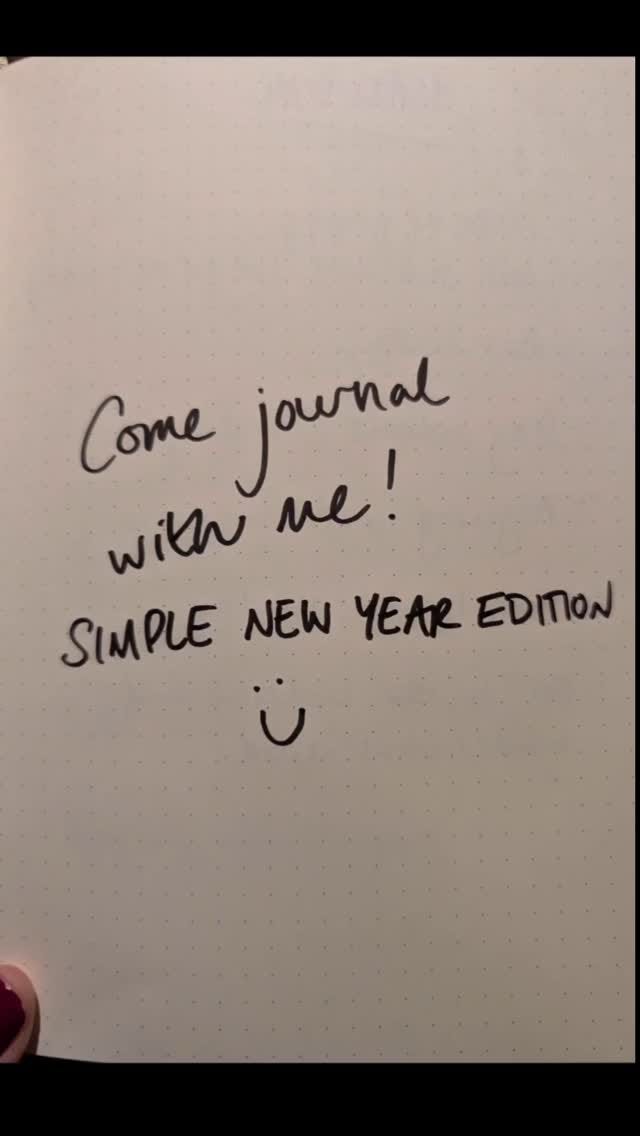 Come journal
with me!
SIMPLE NEW YEAR EDITION